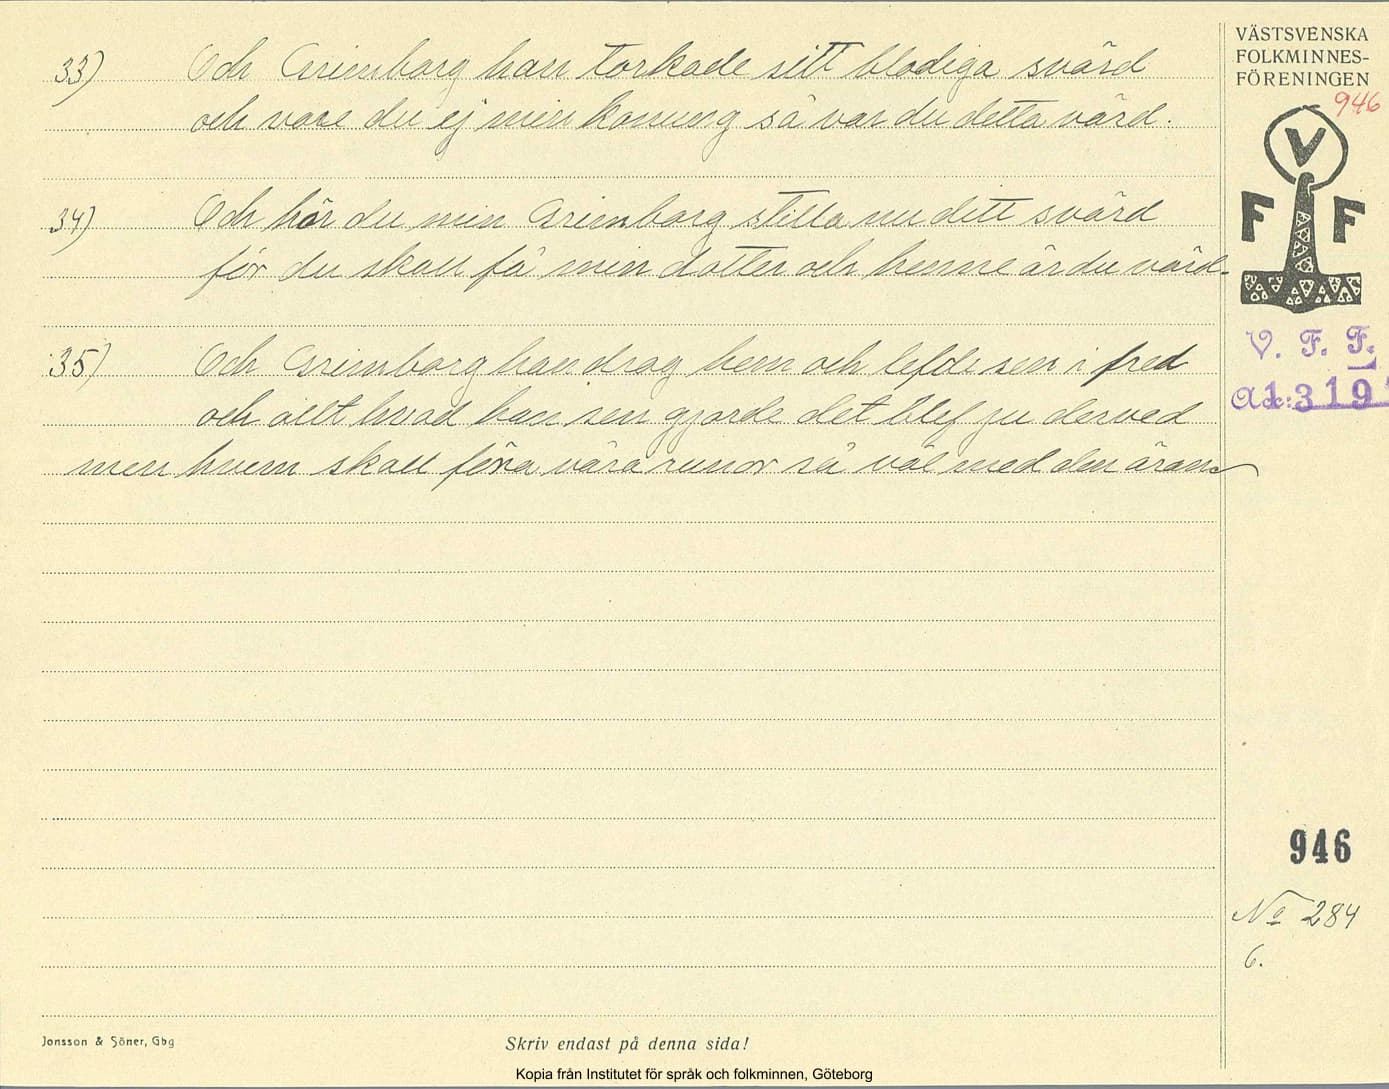 33) Och Grimborg han torkade sitt blodiga svärd
och vore du ej min konung så var du detta värd.
34) Och hör du min Grimborg stilla nu ditt svärd
för du skall få min dotter och henne är du värd.
35) Och Grimborg han drog hem och lefde sen i fred
och allt hvad han sen gjorde det blef ju derved
men hvem skall föra våra runor så väl med den äran
VÄSTSVENSKA
FOLKMINNES-
FÖRENINGEN
946
V
F F
V. F. F.
Acc: 3191
946
No 284
6.
Jonsson & Söner, Gbg
Skriv endast på denna sida!
Kopia från Institutet för språk och folkminnen, Göteborg